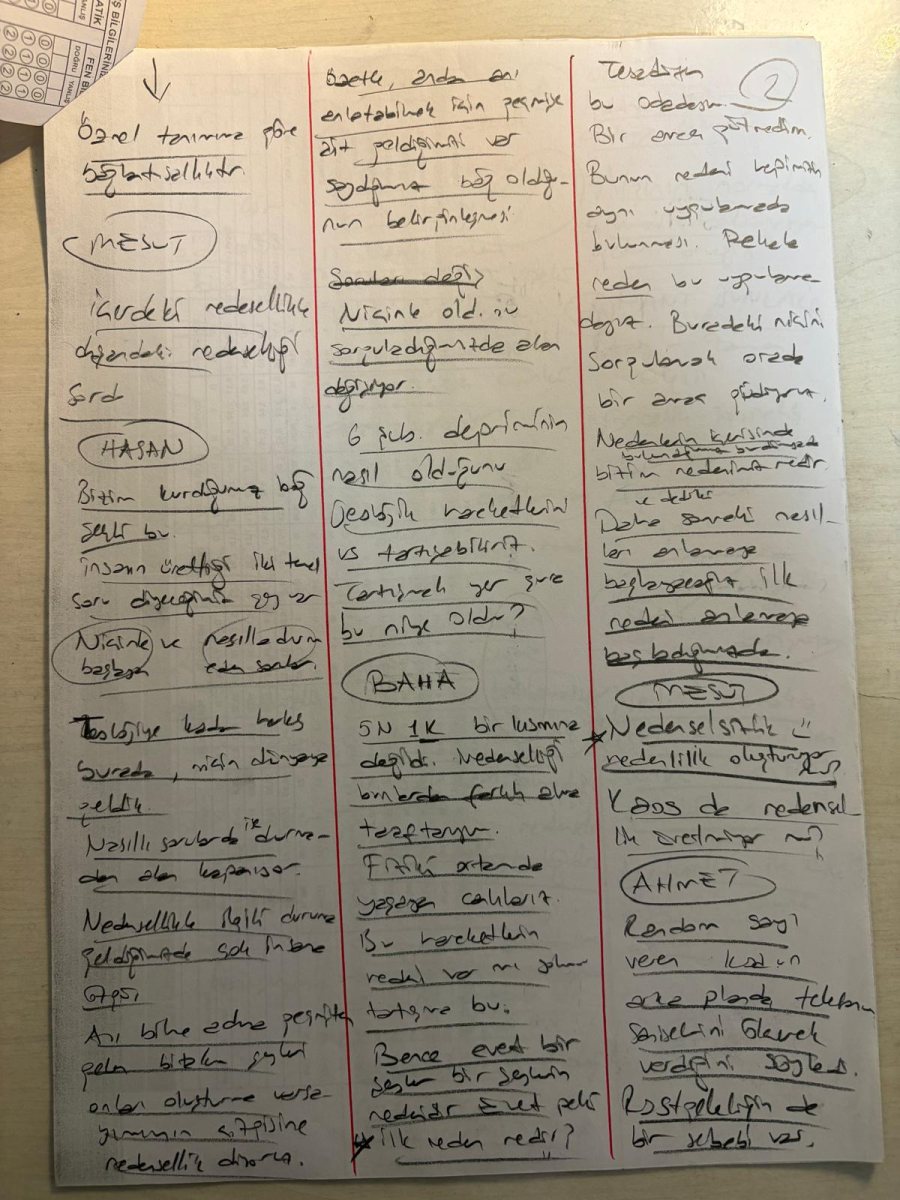 Ş BİLGİLERİN
ATİK
YANLIŞ
FEN B
DOĞRU
YANLIŞ
0 0 0
1 1 1
2 2 2
2
Öznel tanımına göre
bağlantısallıktır.
MESUT
İçerdeki nedensellikle
dışarıdaki nedenselliği
Sordu
HASAN
Bizim kurduğumuz bağ
şekli bu.
İnsanın ürettiği iki temel
soru diyeceğimiz şey var
Niçinle ve nasılla durum
başlayan eden sorular.
Teolojiye kadar herkes
burada, niçin dünyaya
geldik.
Nasıllı sorularda ise durma-
dan alan kapanıyor.
Nedensellikle ilgili duruma
geldiğimizde çok insana
özgü.
Anı bilme adına geçmişten
gelen bizden şeyleri
onları oluşturma varsa-
yımının çizgisine
nedensellik diyoruz.
Özetle, andan anı
anlatabilmek için geçmişe
ait geldiğimizi var
saydığımız bağ olduğu-
nun belirginleşmesi
Soruları değiş
Niçinle old. nu
sorguladığımızda alan
değişiyor.
6 şub. depriminin
nasıl olduğunu
Jeolojik hareketlerini
vs tartışabiliriz.
Tartışmalı yer şura
bu niye oldu?
BAHA
5N 1K bir kısmına
değildi. Nedenselliği
bunlardan farklı alma
taraftarıyım.
Fiziki ortamda
yaşayan canlılarız.
Bu hareketlerin
nedeni var mı
tartışma bu.
Bence evet bir
şeyler bir şeylerin
nedenidir Evet peki
* İlk neden nedir?
Tesadüfen
bu odadayım.
Bir amaç gütmedim.
Bunun nedeni hepimizin
aynı uygulamada
bulunması. Pekala
neden bu uygulama-
dayız. Buradaki niçini
Sorgulamak orada
bir amaç güdüyoruz.
Nedenlerin içerisinde
bulunduğumuz
bizim nedenimiz nedir
ve dediki
Daha sonraki nasıl-
ları anlamaya
başlayacağız ilk
nedeni anlamaya
başladığımızda.
MESUT
* Nedenselsizlik
nedenlilik oluşturuyor
Kaos da nedensel-
lik üretmiyor mu?
AHMET
Random sayı
veren kodun
arka planda telefonun
sıcaklığını
verdiğini söyledi.
Rastgeleliğin de
bir sebebi var.